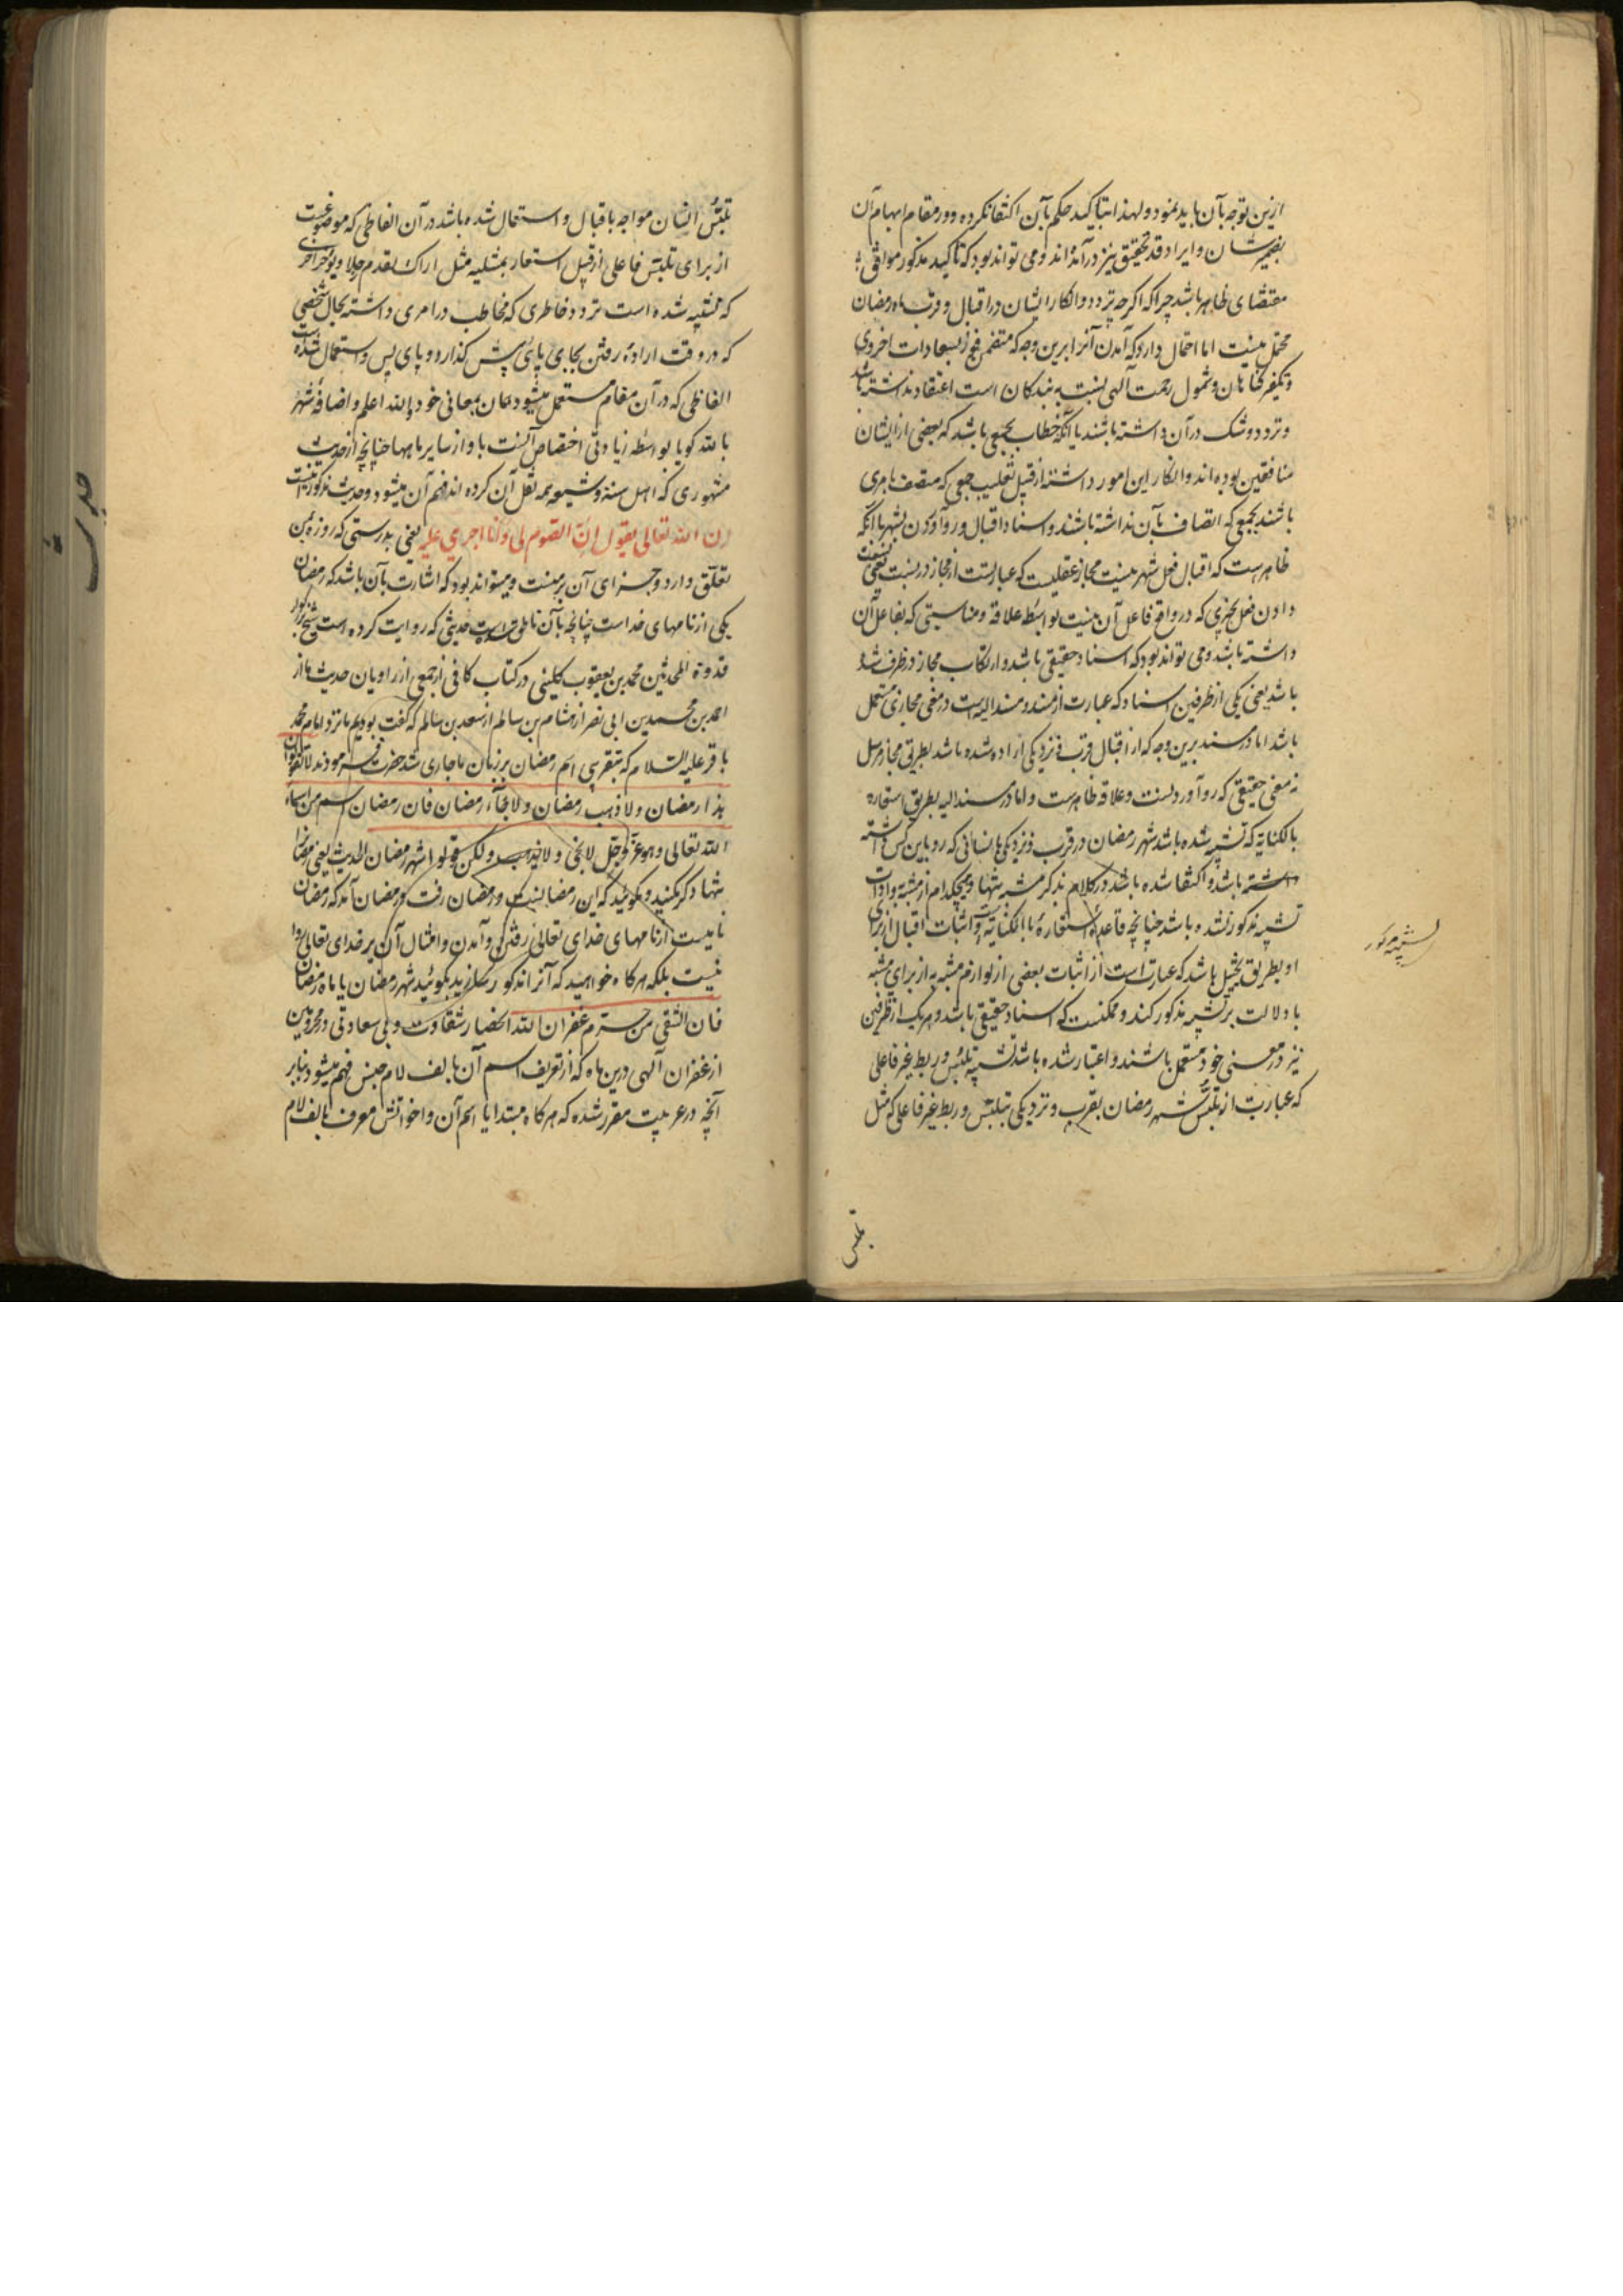 ازین توجه بآن باید نمود و لهذا بتاکید حکم بآن اکتفا نکرده و در مقام ابهام آن
بضمیر شان و ایراد قد تحقیق نیز درآمده‌اند و می تواند بود که تاکید مذکور موافق
مقتضای ظاهر باشد چرا که اگرچه تردد و انکار ایشان در اقبال و قرب ماه رمضان
محتمل نیست اما احتمال دارد که آمدن آنرا برین وجه که متضمن فوز بسعادات اخروی
و تکفیر گناهان و شمول رحمت آلهی نسبت به بندگان است اعتقاد نداشته باشند
و تردد و شک در آن داشته باشند یا آنکه خطاب بجمعی باشد که بعضی از ایشان
منافقین بوده‌اند و انکار این امور داشتند از قبیل تغلیب جمعی که متصف بامری
باشند بجمعی که اتصاف بآن نداشته باشند و اسناد اقبال و رو آوردن بشهر با آنکه
ظاهرست که اقبال فعل شهر نیست مجاز عقلیست که عبارتست از مجاز در نسبت یعنی نسبت
دادن فعل بچیزی که در واقع فاعل آن نیست بواسطه علاقه و مناسبتی که بفاعل آن
داشته باشد و می تواند بود که اسناد حقیقی باشد و ارتکاب مجاز در طرف شده
باشد یعنی یکی از طرفین اسناد که عبارت از مسند و مسند الیه است در معنی مجازی مستعمل
باشد اما در مسند برین وجه که از اقبال قرب و نزدیکی اراده شده باشد بطریق مجاز مرسل
نه معنی حقیقی که رو آوردنست و علاقه ظاهرست و اما در مسند الیه بطریق استعاره
بالکنایه که تشبیه شده باشد شهر رمضان در قرب و نزدیکی بانسانی که رو باین کس داشته
باشد و اکتفا شده باشد در کلام بذکر مشبه تنها و هیچکدام از مشبه و ادوات
تشبیه مذکور نشده باشد چنانچه قاعده استعاره بالکنایه است و اثبات اقبال از برای
او بطریق تخییل باشد که عبارتست از اثبات بعضی از لوازم مشبه به از برای مشبه
تا دلالت بر تشبیه مذکور کند و ممکنست که اسناد حقیقی باشد و هر یک از طرفین
نیز در معنی خود مستعمل باشند و اعتبار شده باشد تشبیه تلبس و ربط غیر فاعلی
که عبارت از تلبس شهر رمضان بقرب و نزدیکی بتلبس و ربط غیر فاعلی که مثل
تلبس
تلبس انسان مواجه باقبال و استعمال شده باشد در آن الفاظی که موضوعست
از برای تلبس فاعلی از قبیل استعاره تمثیلیه مثل اراک تقدم رجلا و تؤخر اخری
که تشبیه شده است تردد خاطری که مخاطب در امری داشته بحال شخصی
که در وقت اراده رفتن بجایی پائی پیش گذارد و پای پس و استعمال شده است
الفاظی که در آن مقام مستعمل میشود همان بمعانی خود والله اعلم و اضافه شهر
بالله گویا بواسطه زیادتی اختصاص آنست باو از سایر ماهها چنانچه از حدیث
مشهوری که اهل سنه و شیعه همه نقل آن کرده‌اند فهم آن میشود و حدیث مذکور اینست
ان الله تعالی یقول ان الصوم لی و انا اجزی علیه یعنی بدرستی که روزه بمن
تعلق دارد و جزای آن بر منست و میتواند بود که اشارت بآن باشد که رمضان
یکی از نامهای خداست چنانچه بآن ناطق است حدیثی که روایت کرده است شیخ بزرگوار
قدوة المحدثین محمد بن یعقوب کلینی در کتاب کافی از جمعی از راویان حدیث ما از
احمد بن محمد بن ابی نصر از هشام بن سالم از سعد بن سالم که گفت بودیم ما نزد امام محمد
باقر علیه السلام که بتقریبی اسم رمضان بر زبان ما جاری شد حضرت فرمودند لا تقولوا
هذا رمضان و لا ذهب رمضان و لا جاء رمضان فان رمضان اسم من اسماء
الله تعالی و هو عز و جل لا یجئ و لا یذهب ولکن قولوا شهر رمضان الحدیث یعنی رمضانرا
تنها ذکر مکنید و مگوئید که این رمضانست و رمضان رفت و رمضان آمد که رمضان
نامیست از نامهای خدای تعالی و رفتن و آمدن و امثال آن بر خدای تعالی روا
نیست بلکه هرگاه خواهید که آنرا مذکور سازید بگوئید شهر رمضان یا ماه رمضان
فان الشقی من حرم غفران الله انحصار شقاوت و بی سعادتی در محرومین
از غفران آلهی درین ماه که از تعریف اسم آن بالف لام جنس فهم میشود بنابر
آنچه در عربیت مقرر شده که هرگاه مبتدا یا اسم آن و اخواتش معرف بالف لام